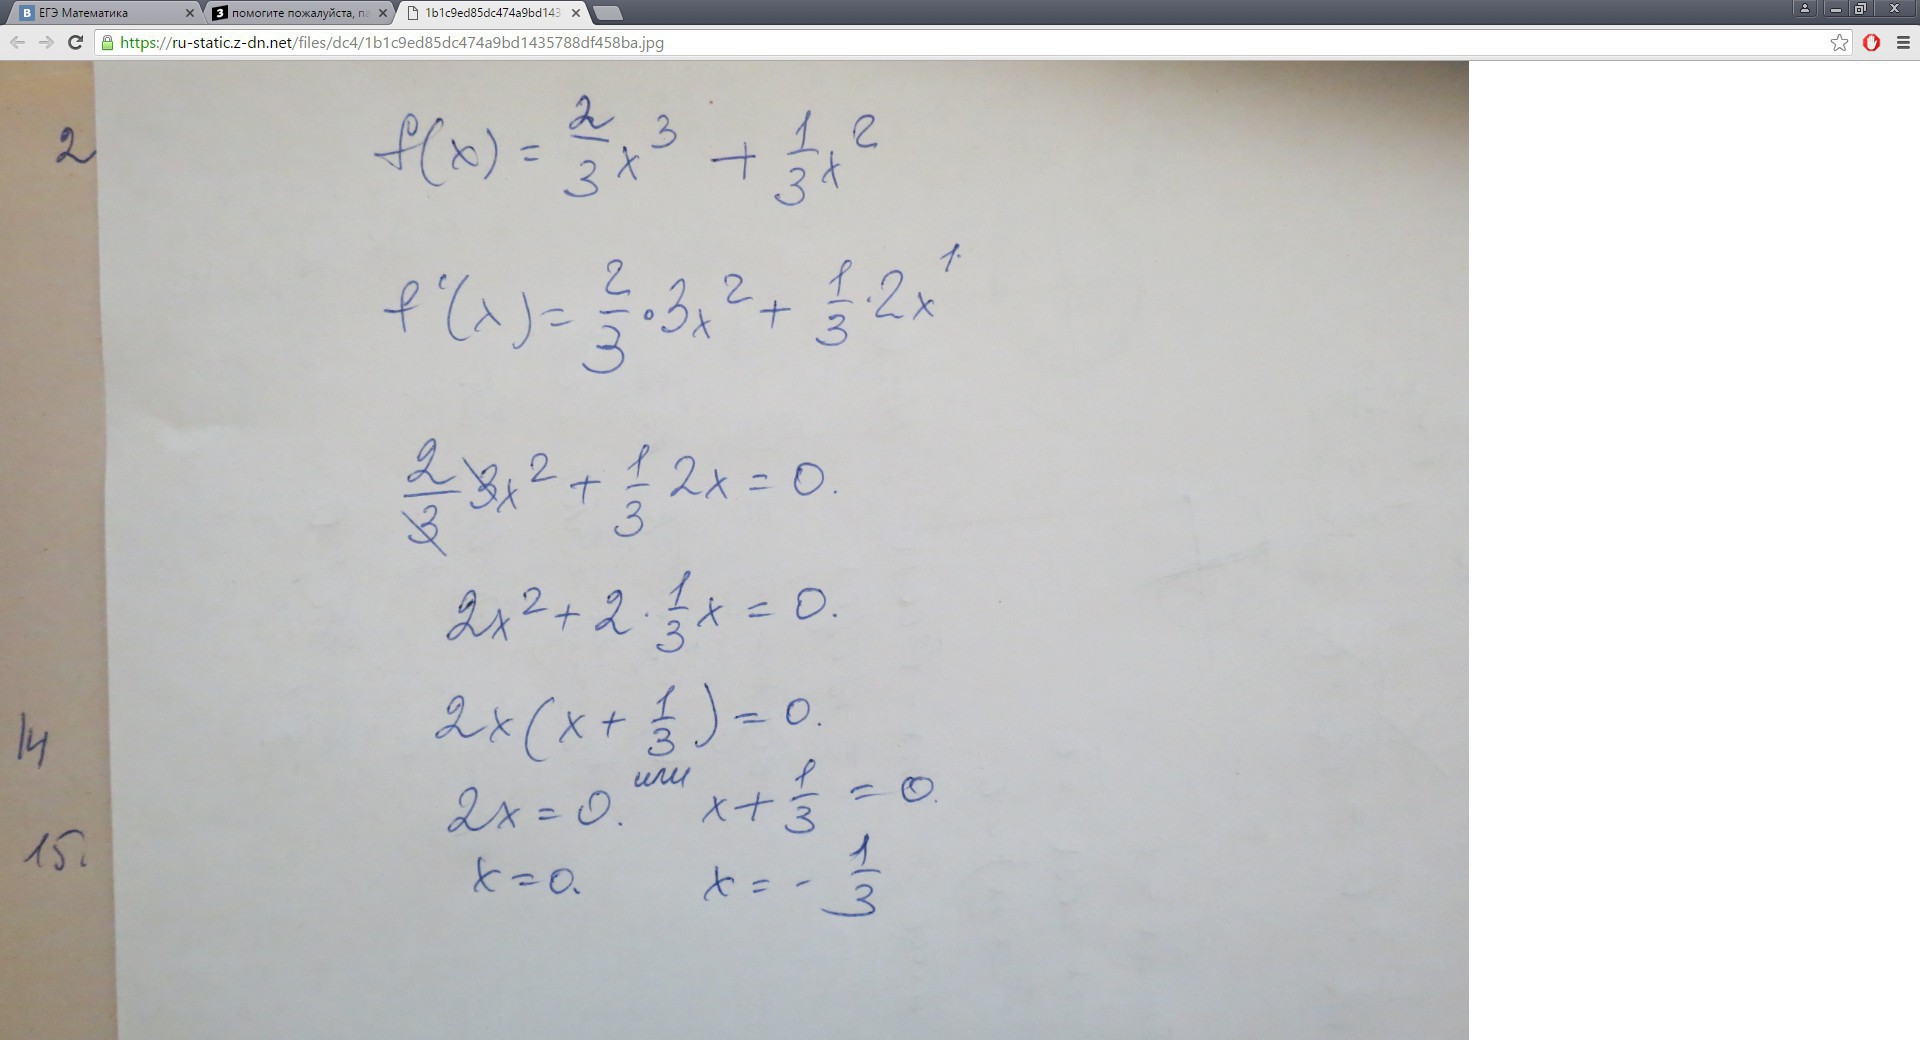 ЕГЭ Математика
помогите пожалуйста, па
1b1c9ed85dc474a9bd143
https://ru-static.z-dn.net/files/dc4/1b1c9ed85dc474a9bd1435788df458ba.jpg
2
f(x) = 2/3 x³ + 1/3 x²
f'(x) = 2/3 • 3x² + 1/3 · 2x¹
2/3 3x² + 1/3 2x = 0.
2x² + 2 · 1/3 x = 0.
2x (x + 1/3) = 0.
14
2x = 0. или x + 1/3 = 0.
15.
x = 0. x = - 1/3